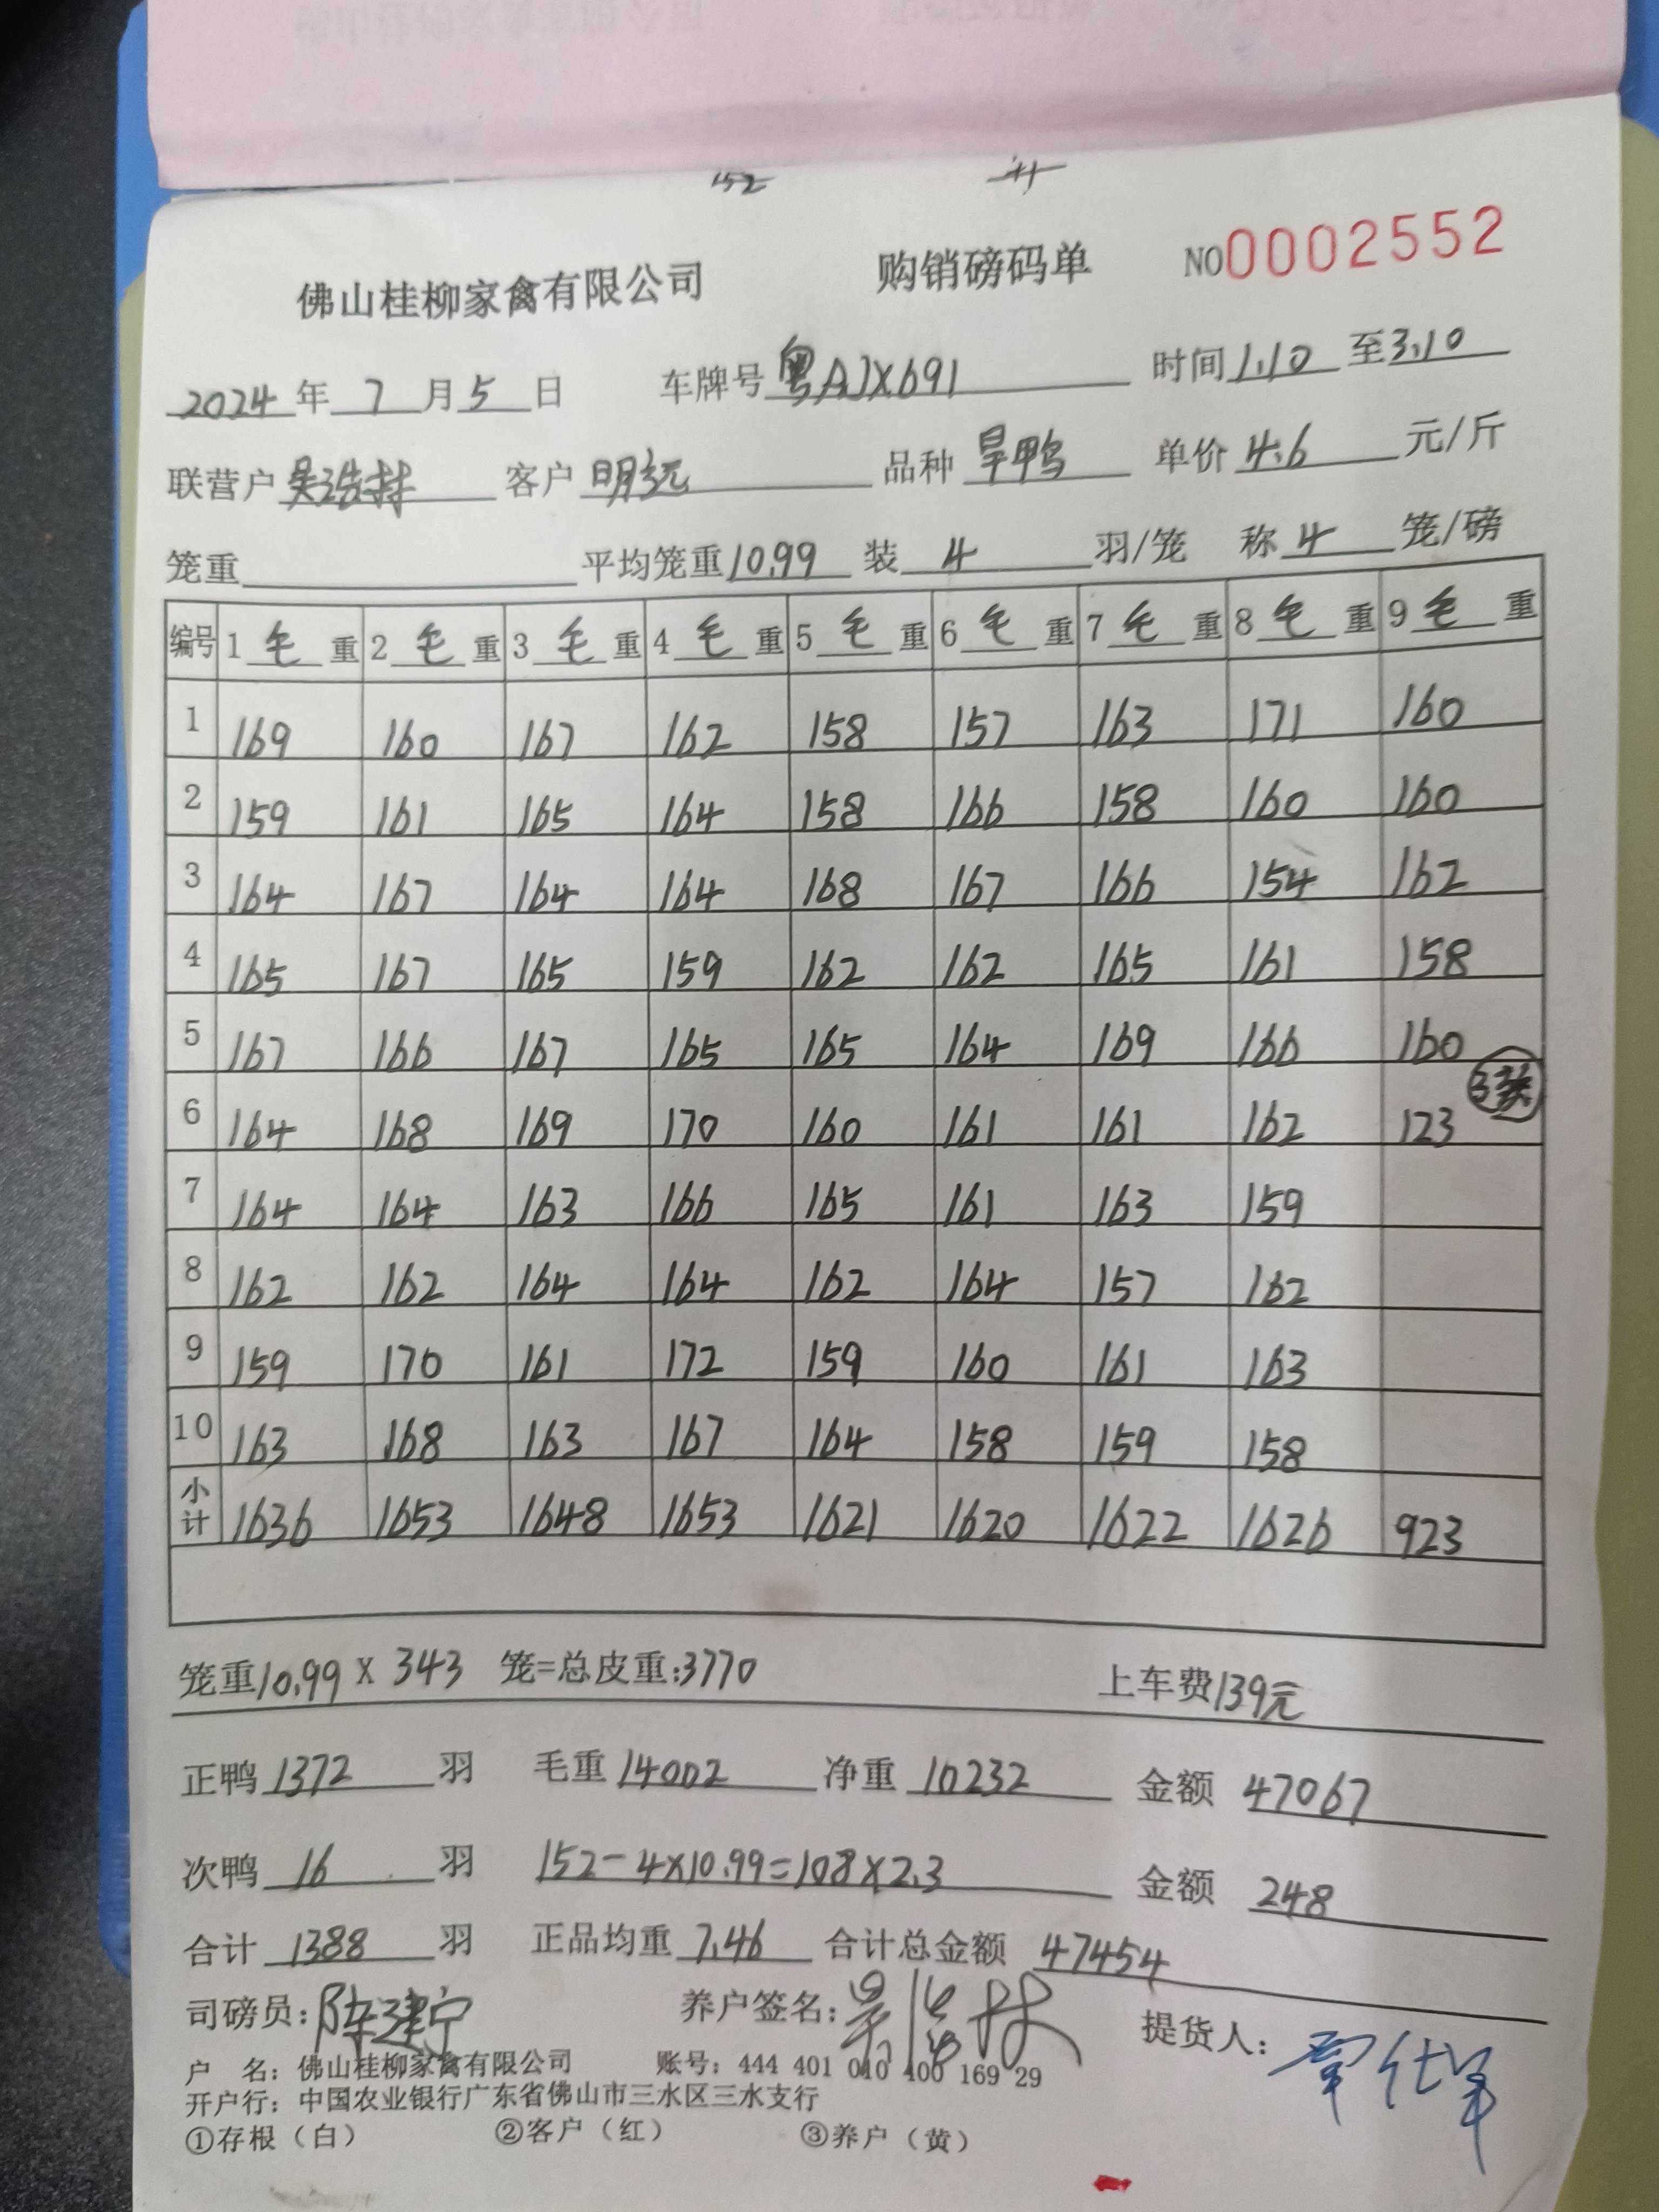 152 4
佛山桂柳家禽有限公司 购销磅码单 NO0002552
2024年7月5日 车牌号 粤AJX691 时间1.10至3.10
联营户 吴浩林 客户 明远 品种 旱鸭 单价 4.6 元/斤
笼重 平均笼重10.99 装 4 羽/笼 称 4 笼/磅
编号 1 毛 重 2 毛 重 3 毛 重 4 毛 重 5 毛 重 6 毛 重 7 毛 重 8 毛 重 9 毛 重
1 169 160 167 162 158 157 163 171 160
2 159 161 165 164 158 166 158 160 160
3 164 167 164 164 168 167 166 154 162
4 165 167 165 159 162 162 165 161 158
5 167 166 167 165 165 164 169 166 160
6 164 168 169 170 160 161 161 162 123
7 164 164 163 166 165 161 163 159
8 162 162 164 164 162 164 157 162
9 159 170 161 172 159 160 161 163
10 163 168 163 167 164 158 159 158
小计 1636 1653 1648 1653 1621 1620 1622 1626 923
笼重10.99 X 343 笼=总皮重:3770 上车费139元
正鸭 1372 羽 毛重 14002 净重 10232 金额 47067
次鸭 16 羽 152-4×10.99=108×2.3 金额 248
合计 1388 羽 正品均重 7.46 合计总金额 47454
司磅员: 陈建宁 养户签名: 吴浩林 提货人:
户 名: 佛山桂柳家禽有限公司 账号: 444 401 010 400 169 29
开户行: 中国农业银行广东省佛山市三水区三水支行
①存根（白） ②客户（红） ③养户（黄）